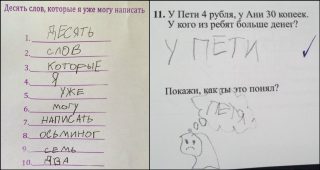 Десять слов, которые я уже могу написать
1. ДЕСЯТЬ
2. СЛОВ
3. КОТОРЫЕ
4. Я
5. УЖЕ
6. МОГУ
7. НАПИСАТЬ
8. ОСЬМИНОГ
9. СЕМЬ
10. ДВА
11. У Пети 4 рубля, у Ани 30 копеек.
У кого из ребят больше денег?
У ПЕТИ
Покажи, как ты это понял?
ПЕТЯ